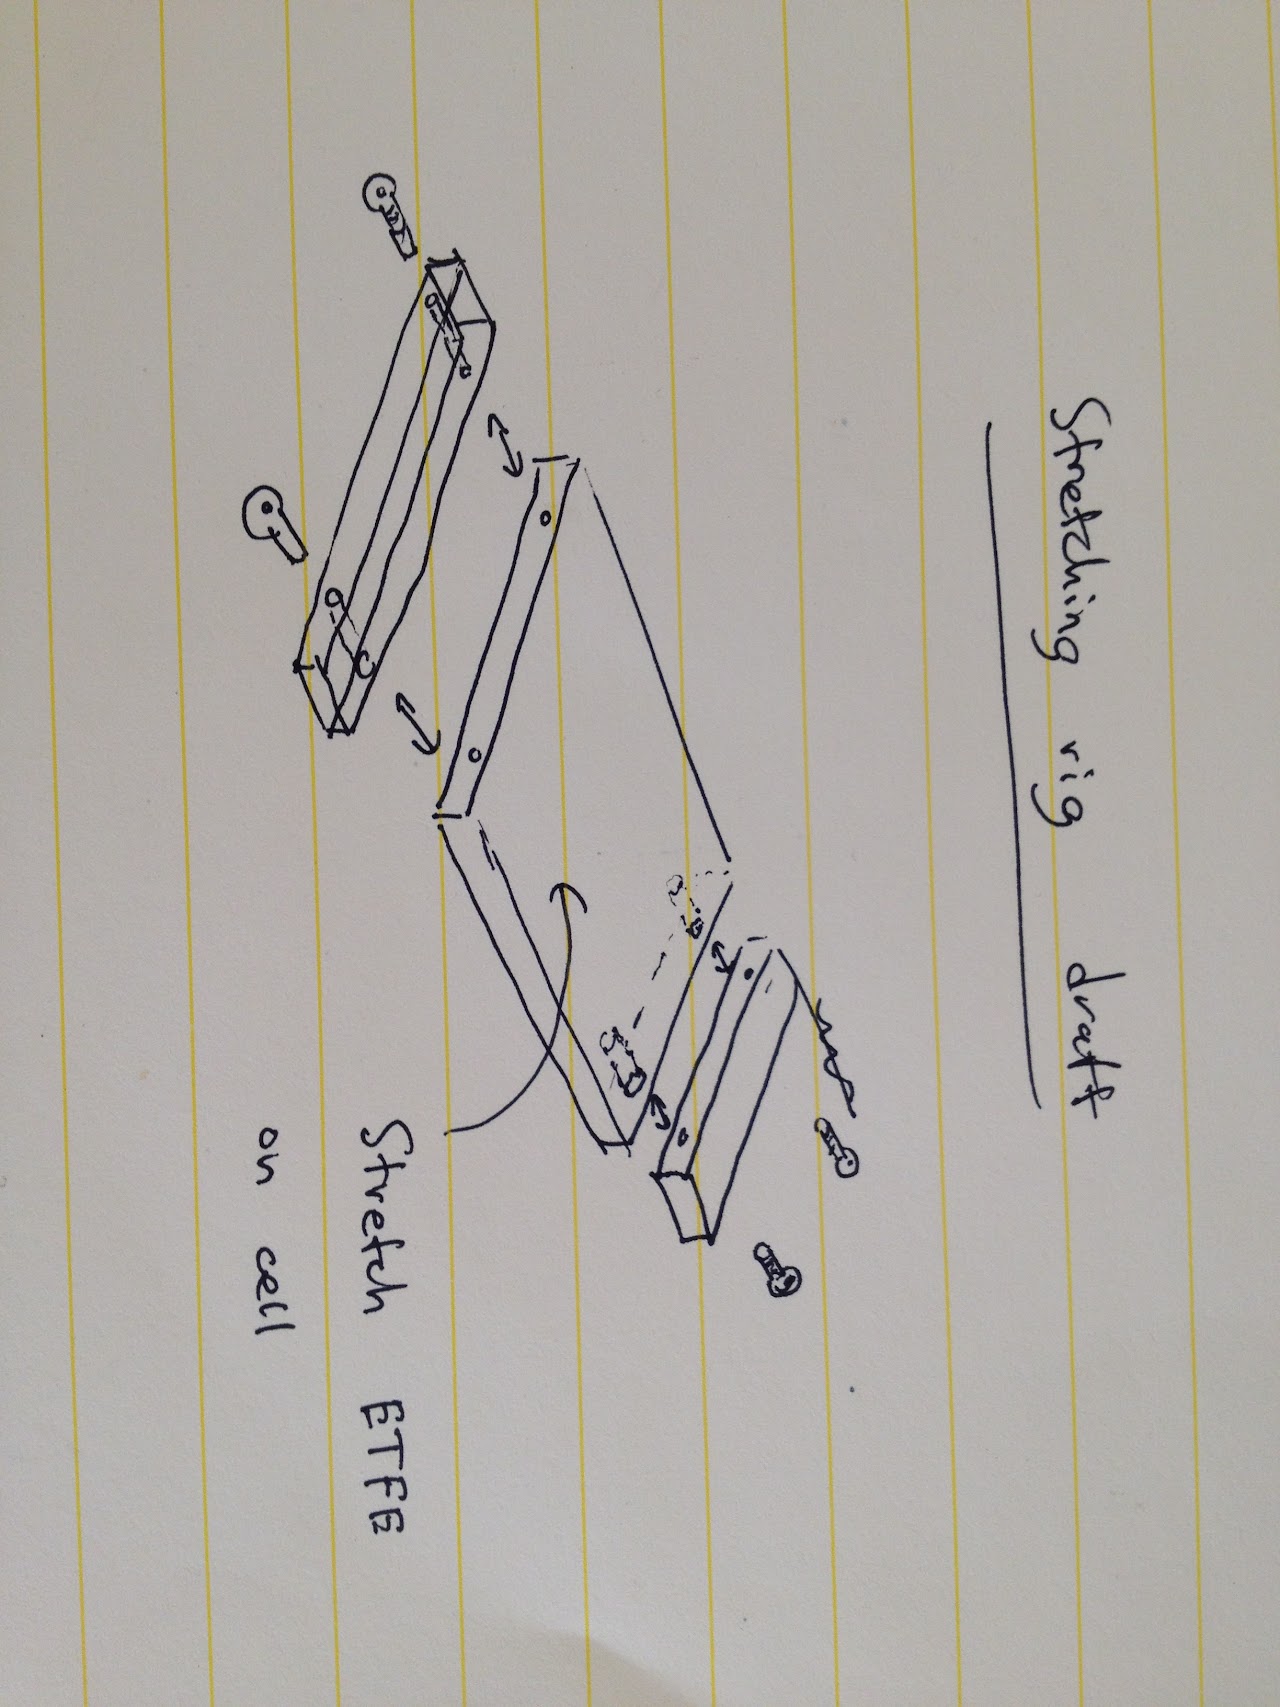 Stretching rig draft
Stretch ETFE
on cell